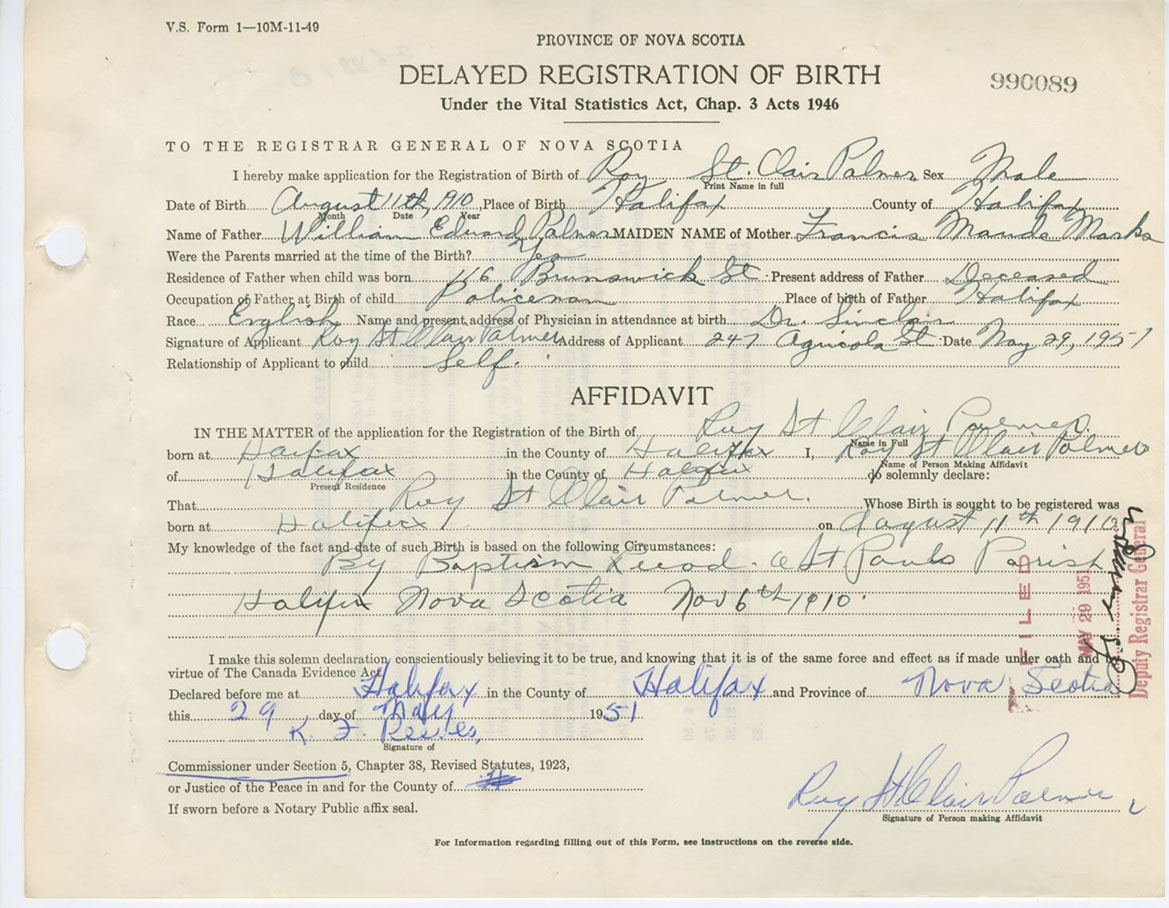 V.S. Form 1—10M-11-49
PROVINCE OF NOVA SCOTIA
DELAYED REGISTRATION OF BIRTH
990089
Under the Vital Statistics Act, Chap. 3 Acts 1946
TO THE REGISTRAR GENERAL OF NOVA SCOTIA
I hereby make application for the Registration of Birth of Roy St. Clair Palmer Sex Male
Print Name in full
Date of Birth August 11th, 1910 Place of Birth Halifax County of Halifax
Month Date Year
Name of Father William Edward Palmer MAIDEN NAME of Mother Francis Maude Marks
Were the Parents married at the time of the Birth? Yes
Residence of Father when child was born 116 Brunswick St Present address of Father Deceased
Occupation of Father at Birth of child Policeman Place of birth of Father Halifax
Race English Name and present address of Physician in attendance at birth Dr. Sinclair
Signature of Applicant Roy St Clair Palmer Address of Applicant 247 Agricola St Date May 29, 1951
Relationship of Applicant to child Self.
AFFIDAVIT
IN THE MATTER of the application for the Registration of the Birth of Roy St Clair Palmer
Name in Full
born at Halifax in the County of Halifax I, Roy St Clair Palmer
Name of Person Making Affidavit
of Halifax in the County of Halifax do solemnly declare:
Present Residence
That Roy St Clair Palmer. Whose Birth is sought to be registered was
born at Halifax on August 11th 1910
My knowledge of the fact and date of such Birth is based on the following Circumstances:
By Baptism Record. St Pauls Parish
Halifax Nova Scotia Nov 6th 1910.
FILED
MAY 29 1951
Deputy Registrar General
I make this solemn declaration conscientiously believing it to be true, and knowing that it is of the same force and effect as if made under oath and by
virtue of The Canada Evidence Act.
Declared before me at Halifax in the County of Halifax and Province of Nova Scotia
this 29 day of May 1951
K. F.
Signature of
Commissioner under Section 5, Chapter 38, Revised Statutes, 1923,
or Justice of the Peace in and for the County of
If sworn before a Notary Public affix seal.
Roy St Clair Palmer
Signature of Person making Affidavit
For Information regarding filling out of this Form, see instructions on the reverse side.